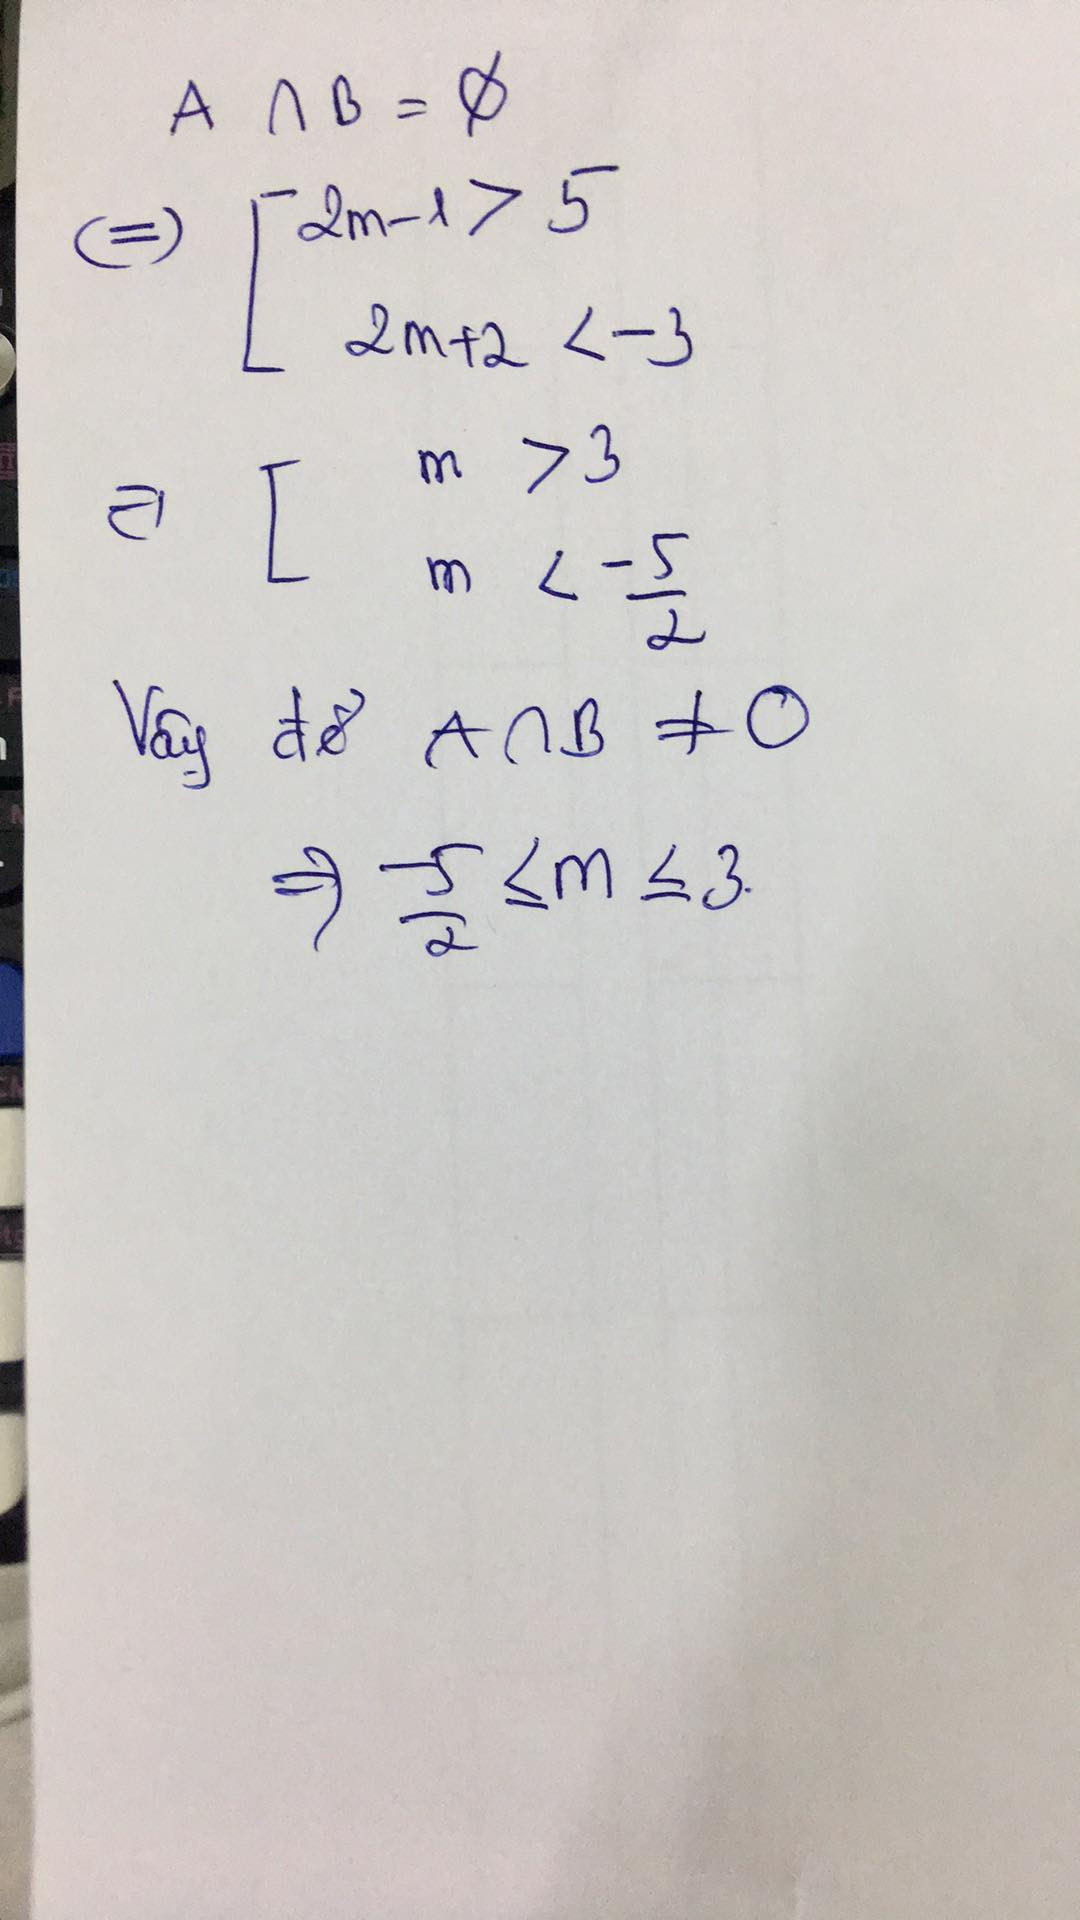 A ∩ B = ∅
(=) [ 2m-1 > 5
2m+2 < -3
=) [ m > 3
m < -5/2
Vậy để A∩B ≠ 0
=> -5/2 ≤ m ≤ 3.